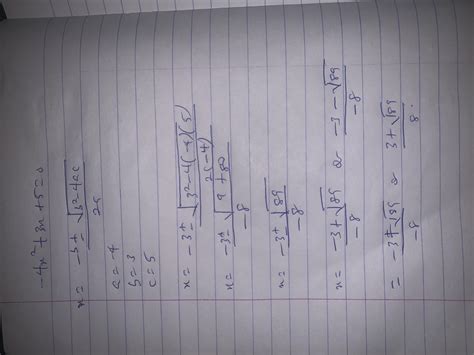 -4x² + 3x + 5 = 0
x = -b ± √b² - 4ac / 2a
a = -4
b = 3
c = 5
x = -3 ± √3² - 4(-4)(5) / 2(-4)
x = -3 ± √9 + 80 / -8
x = -3 ± √89 / -8
x = -3 + √89 / -8 or -3 - √89 / -8
= -3 + √89 / -8 or 3 + √89 / 8.